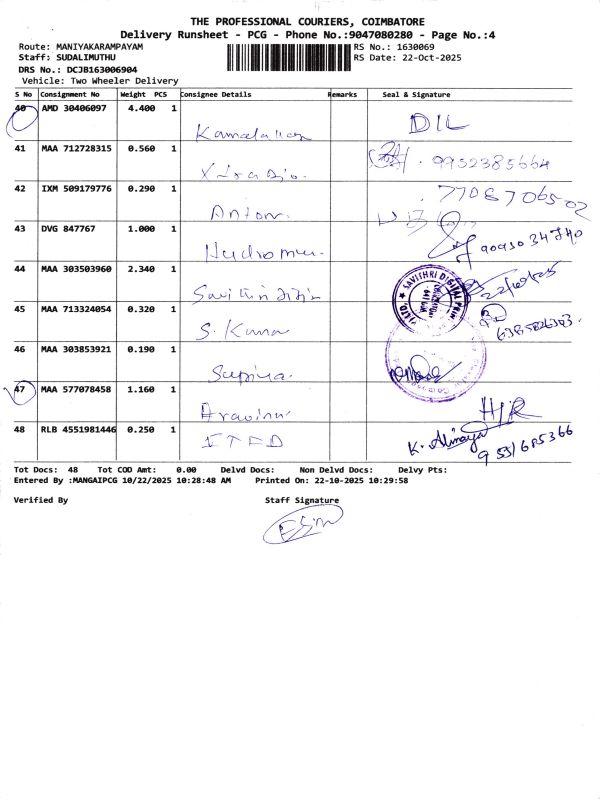 THE PROFESSIONAL COURIERS, COIMBATORE
Delivery Runsheet - PCG - Phone No.:9047080280 - Page No.:4
Route: MANIYAKARAMPAYAM RS No.: 1630069
Staff: SUDALIMUTHU RS Date: 22-Oct-2025
DRS No.: DCJB163006904
Vehicle: Two Wheeler Delivery
S No Consignment No Weight PCS Consignee Details Remarks Seal & Signature
40 AMD 30406097 4.400 1 DIL
41 MAA 712728315 0.560 1 9952385664
42 IXM 509179776 0.290 1 Anton.
43 DVG 847767 1.000 1
44 MAA 303503960 2.340 1 SAVITHRI DIGITAL
45 MAA 713324054 0.320 1 S. Kuma
46 MAA 303853921 0.190 1 Supiya.
47 MAA 577078458 1.160 1 H/R
48 RLB 4551981446 0.250 1 ITFD
Tot Docs: 48 Tot COD Amt: 0.00 Delvd Docs: Non Delvd Docs: Delvy Pts:
Entered By :MANGAIPCG 10/22/2025 10:28:48 AM Printed On: 22-10-2025 10:29:58
Verified By Staff Signature